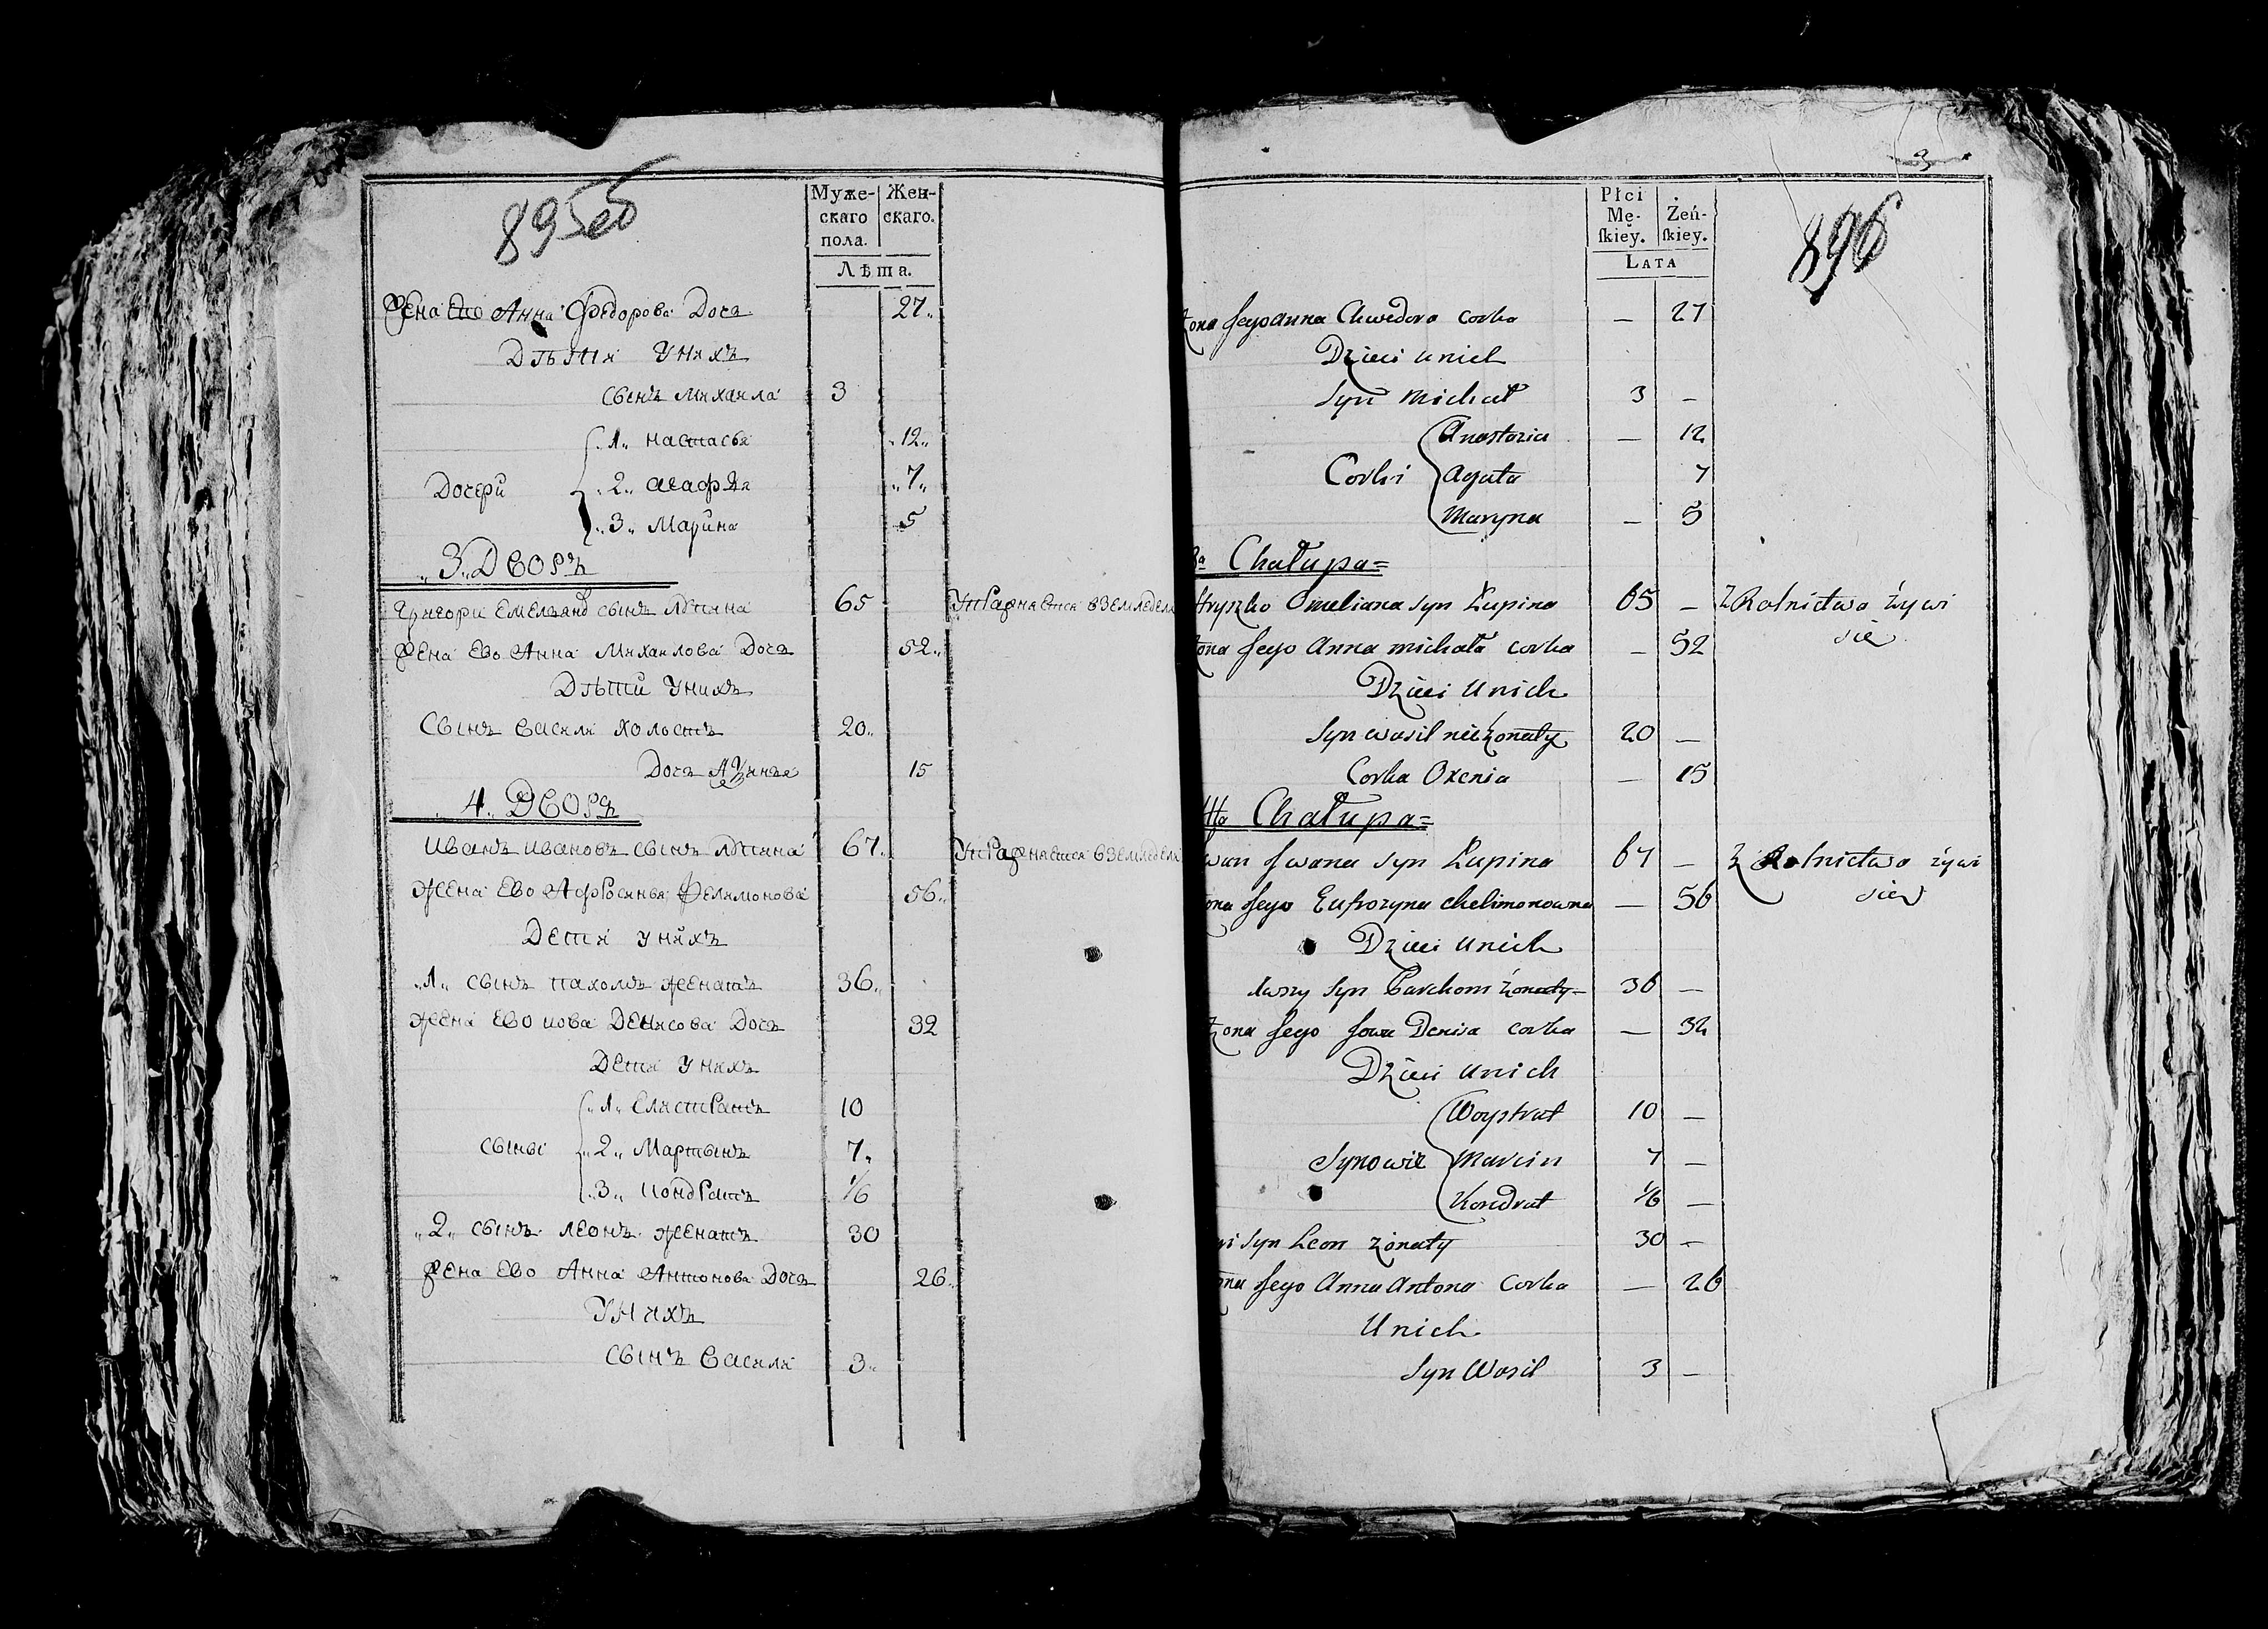 895 об
Муже-
скаго
пола.
Жен-
скаго.
Лѣта.
Жена Ево Анна Федорова Дочь 27
Дѣти Уних
сынъ Михаила 3
1 настасья 12
Дочери 2 агафья 7
3 Марина 5
3 Дворъ
Григори Емельяновъ сынъ Лупина 65 Упражняется вземледели
Жена Ево Анна Михаилова Дочь 52
Дѣти Унихъ
Сынъ Василя холостъ 20
Дочь 15
4 Дворъ
Иванъ ивановъ сынъ Лупина 67 Упражняется вземледели
жена Ево Афросинья Фелимонова 56
Дети унихъ
1 сынъ пахомъ женатъ 36
жена Ево иова Денисова Дочь 32
Дети Унихъ
1 Елистратъ 10
сыны 2 Мартынъ 7
3 кондратъ 1/6
2 сынъ леонъ женатъ 30
Жена Ево Анна Антонова Дочь 26
Унихъ
сынъ Василя 3
3
896
Płci
Mę-
ſkiey.
Żeń-
ſkiey.
LATA
żona Jego anna Chwedora corka — 27
Dzieci unich
Syn michał 3 —
Anastazia — 12
Corki Agata 7
Maryna — 5
3a Chałupa=
Hryszko Omeliana syn Łupina 65 — Z Rolnictwa żywi
się
żona Jego Anna michała corka — 52
Dzieci unich
Syn wasil nieżonaty 20 —
Corka Oxenia — 15
4ta Chałupa=
Iwan Iwana syn Łupina 67 — Z Rolnictwa żywi
się
żona Jego Eufrozyna chelimonowna — 56
Dzieci unich
1wszy syn Parchom żonaty 36 —
żona Jego Jowa Denisa corka — 32
Dzieci unich
Woystrat 10 —
Synowie Marcin 7 —
Kondrat 1/6 —
syn Leon żonaty 30 —
żona Jego Anna Antona Corka — 26
Unich
Syn Wasil 3 —